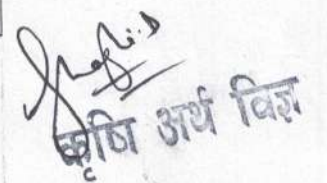 कृषि अर्थ विज्ञ